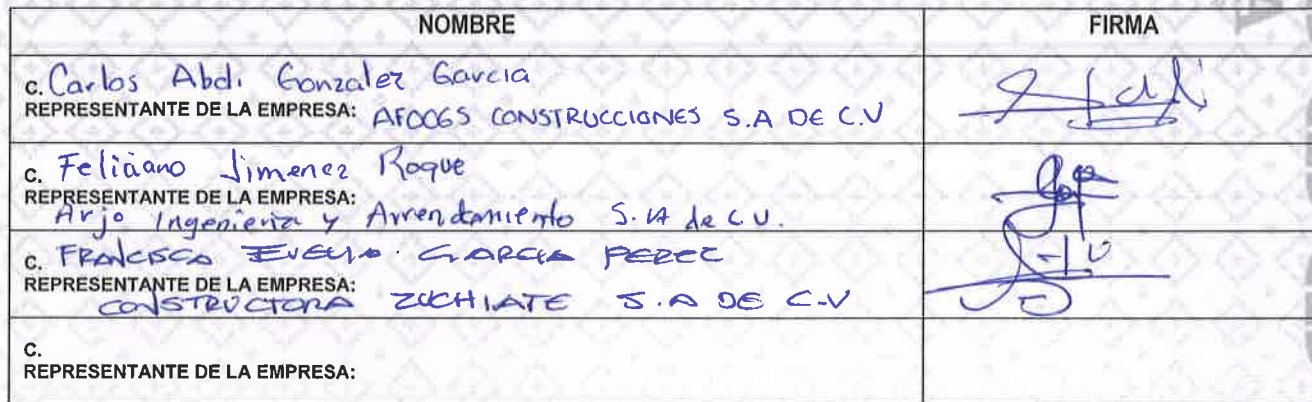 NOMBRE FIRMA
C. Carlos Abdi Gonzalez Garcia
REPRESENTANTE DE LA EMPRESA: AFOOGS CONSTRUCCIONES S.A DE C.V
C. Feliciano Jimenez Roque
REPRESENTANTE DE LA EMPRESA:
Arjo Ingenieria y Arrendamiento S.A de C.V.
C. FRANCISCA EVELIA GARCIA PEREZ
REPRESENTANTE DE LA EMPRESA:
CONSTRUCTORA ZUCHIATE S.A DE C.V
C.
REPRESENTANTE DE LA EMPRESA: